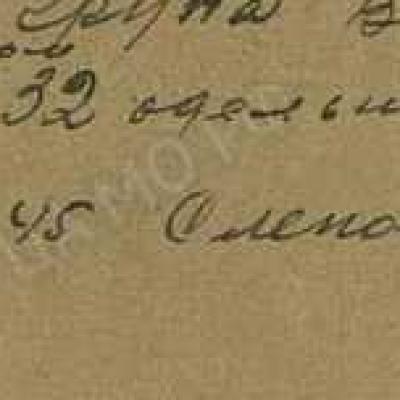 группа в
ом
32 одельн
45 Слепо